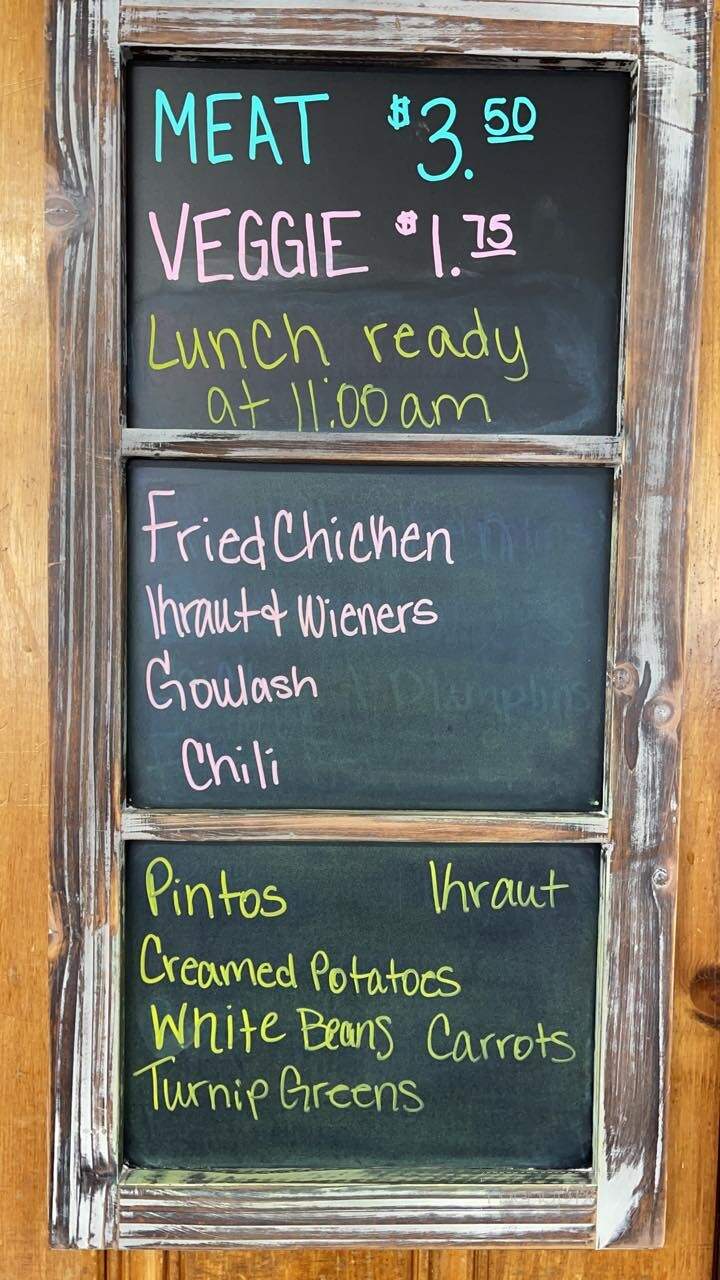 MEAT $3.50
VEGGIE $1.75
Lunch ready
at 11:00am
Fried Chicken
Kraut & Wieners
Goulash
Chili
Pintos Kraut
Creamed Potatoes
White Beans Carrots
Turnip Greens